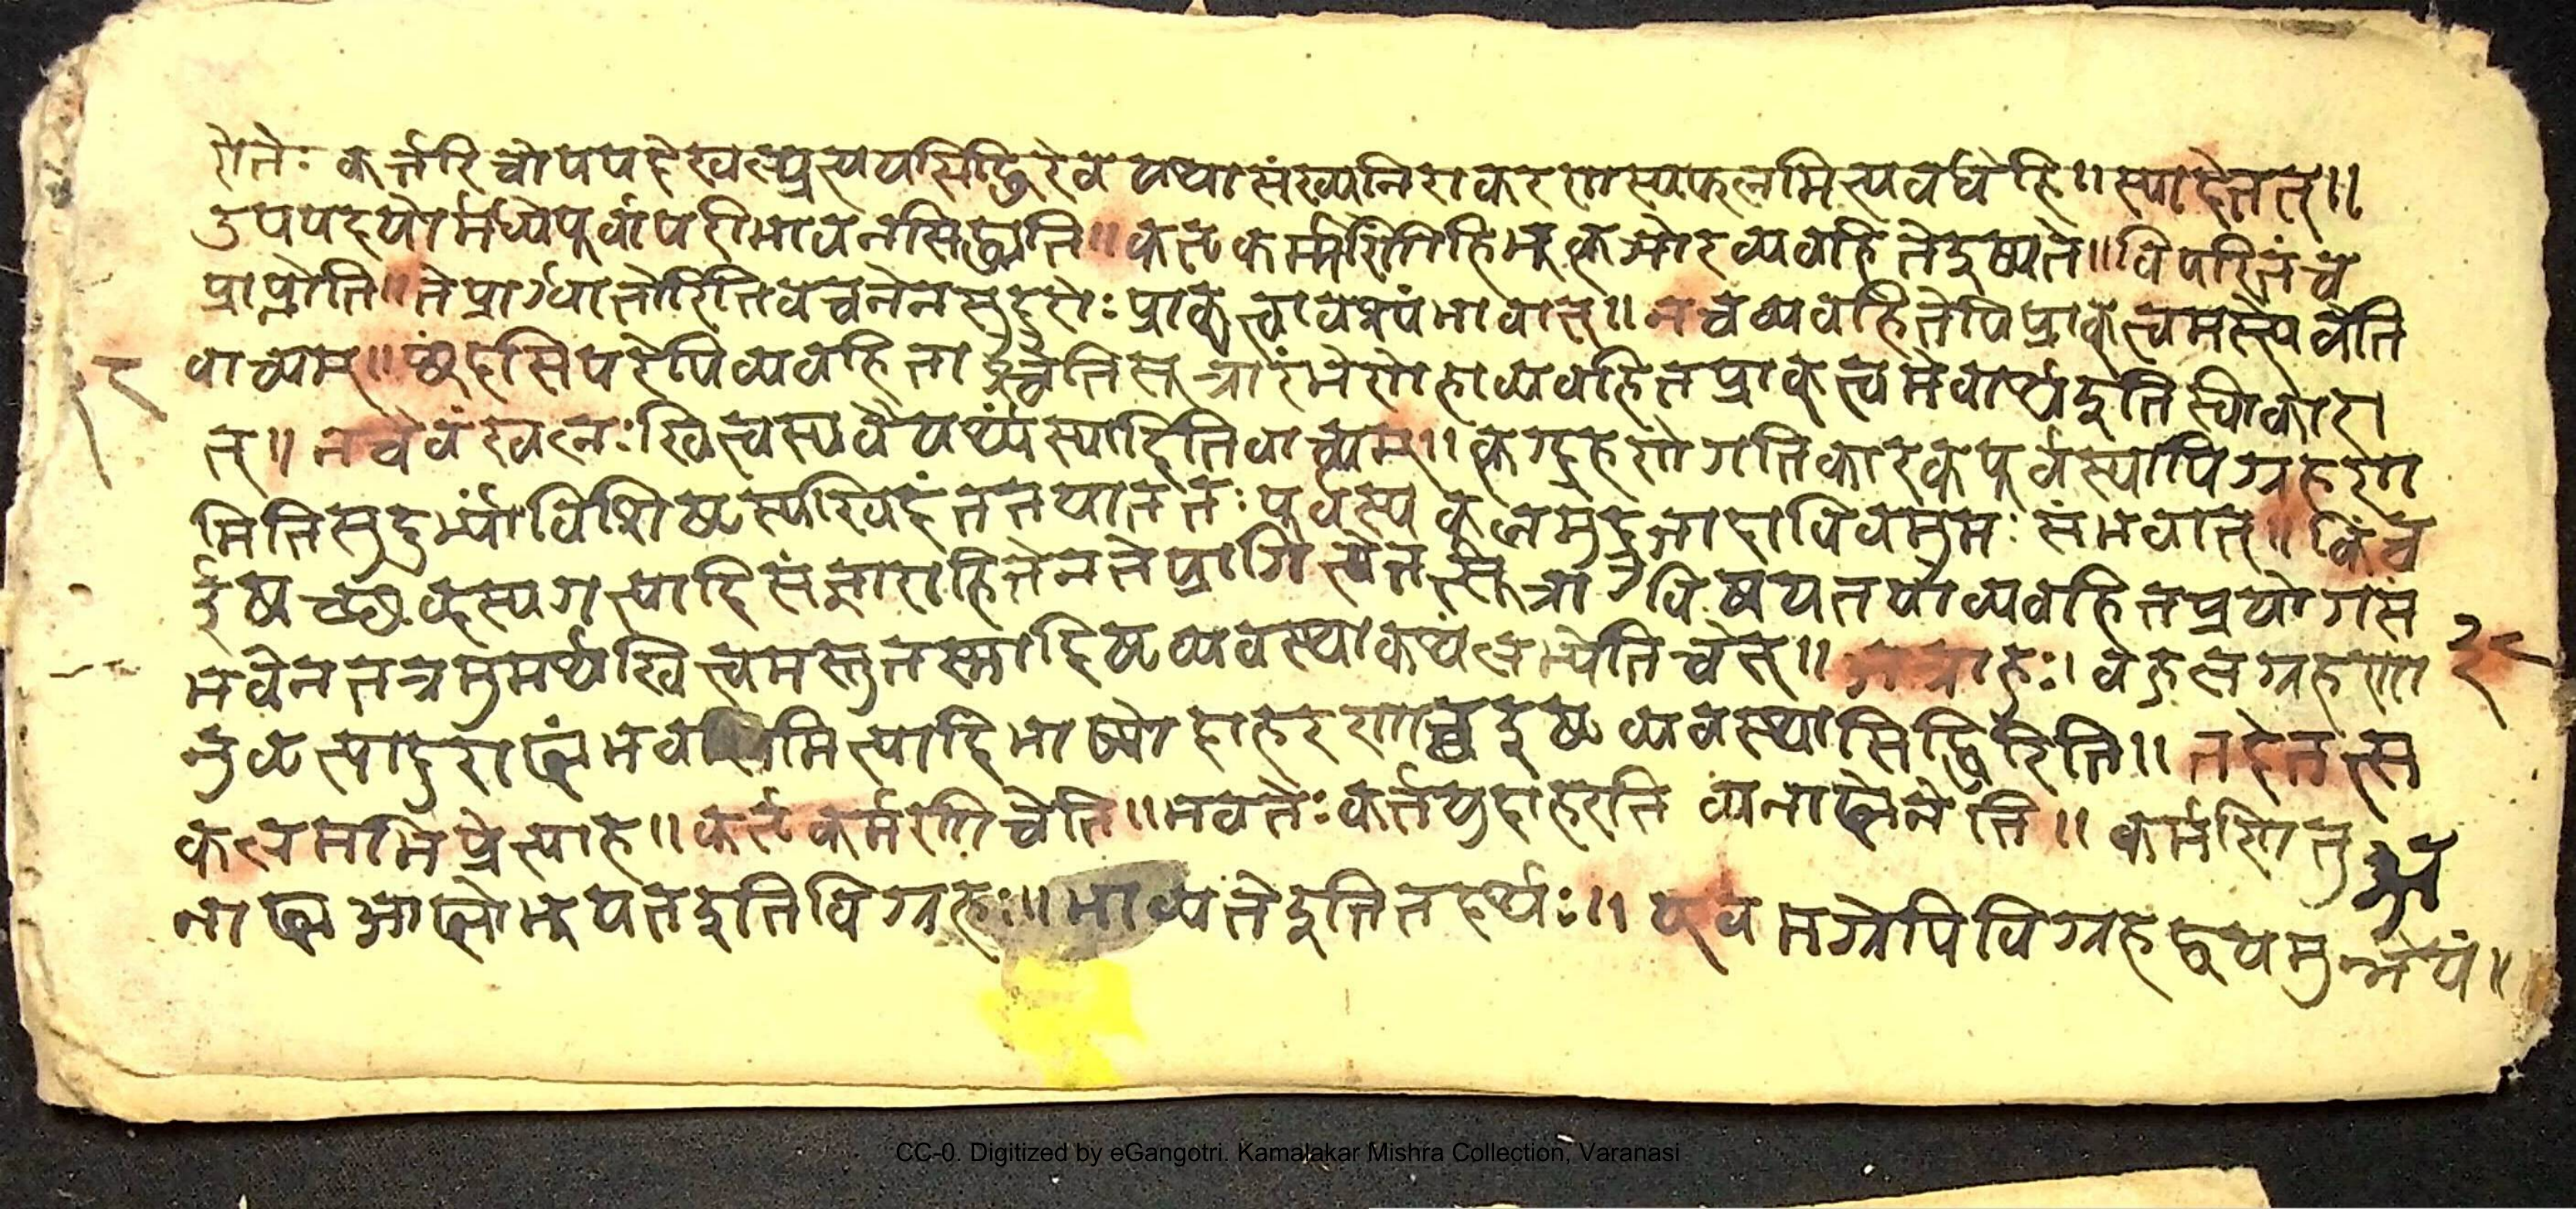 रोतेः कर्त्तरि चोपपदे खल्प्रत्ययसिद्धिरेव यथासंख्यनिराकरणस्य फलमित्यवधेहि ॥ स्यादेतत् ॥
उपपदयोर्मध्ये पूर्वापरीभावेन सिद्ध्यति ॥ कर्तृकर्मणोर्हि भूकृञोरव्यवहिते इष्यते ॥ विपरीतं च
प्राप्नोति ॥ ते प्राग्धातोरिति वचनेन सुदुरोः प्राक्त्वावश्यंभावात् ॥ न च व्यवहितेपि प्राक्त्वमस्त्येवेति
वाच्यम् ॥ छंदसि परेपि व्यवहिताश्चेति सूत्रारंभेणेहाव्यवहितप्राक्त्वमेवार्थ इति स्वीकारा
त् ॥ न चैवं खलः खित्त्वस्य वैयर्थ्यं स्यादिति वाच्यम् ॥ कृद्ग्रहणे गतिकारकपूर्वस्यापि ग्रहण
मिति सुदुर्भ्यां विशिष्टस्य खिदंततया ततः पूर्वस्य कूलमुद्रुजादाविव मुमः संभवात् ॥ किं च
ईषच्छब्दस्य गत्यादिसंज्ञाराहित्येन ते प्रागित्येतत्सूत्रा विषयतया व्यवहितप्रयोगसं
भवेन तत्र मुमर्थं खित्त्वमस्तु तस्मादिष्टव्यवस्था कथं लभ्येति चेत् ॥ अत्राहुः । बहुलग्रहणा
नुवृत्त्या दुराढ्यंभवमित्यादि भाष्योदाहरणाच्च इष्टव्यवस्थासिद्धिरिति ॥ तदेतत्स
कलमभिप्रेत्याह ॥ कर्तृकर्मणी चेति ॥ भवतेः कर्तर्युदाहरति अनाढ्येनेति ॥ कर्मणि तु
नाढ्य आढ्यो भूयत इति विग्रहः ॥ भाव्यते इति तदर्थः ॥ एवमग्रेपि विग्रहद्वयमुन्नेयं ॥
२८
CC-0. Digitized by eGangotri. Kamalakar Mishra Collection, Varanasi